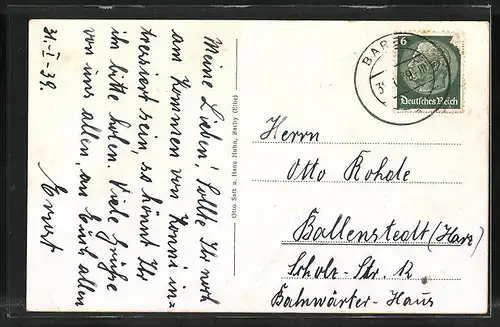 31.I.39.
Meine Lieben! Sollte Ihr noch
am Kommen von Konni in=
teressiert sein, so könnt Ihr
ihn bitte holen. Viele Grüße
von uns allen, an Euch allen
Ernst
Otto Salt u. Hans Huhn, Barby (Elbe)
BAR
6
Deutsches Reich
Herrn
Otto Rohde
Ballenstedt (Harz)
Scholz-Str. 12
Bahnwärter-Haus